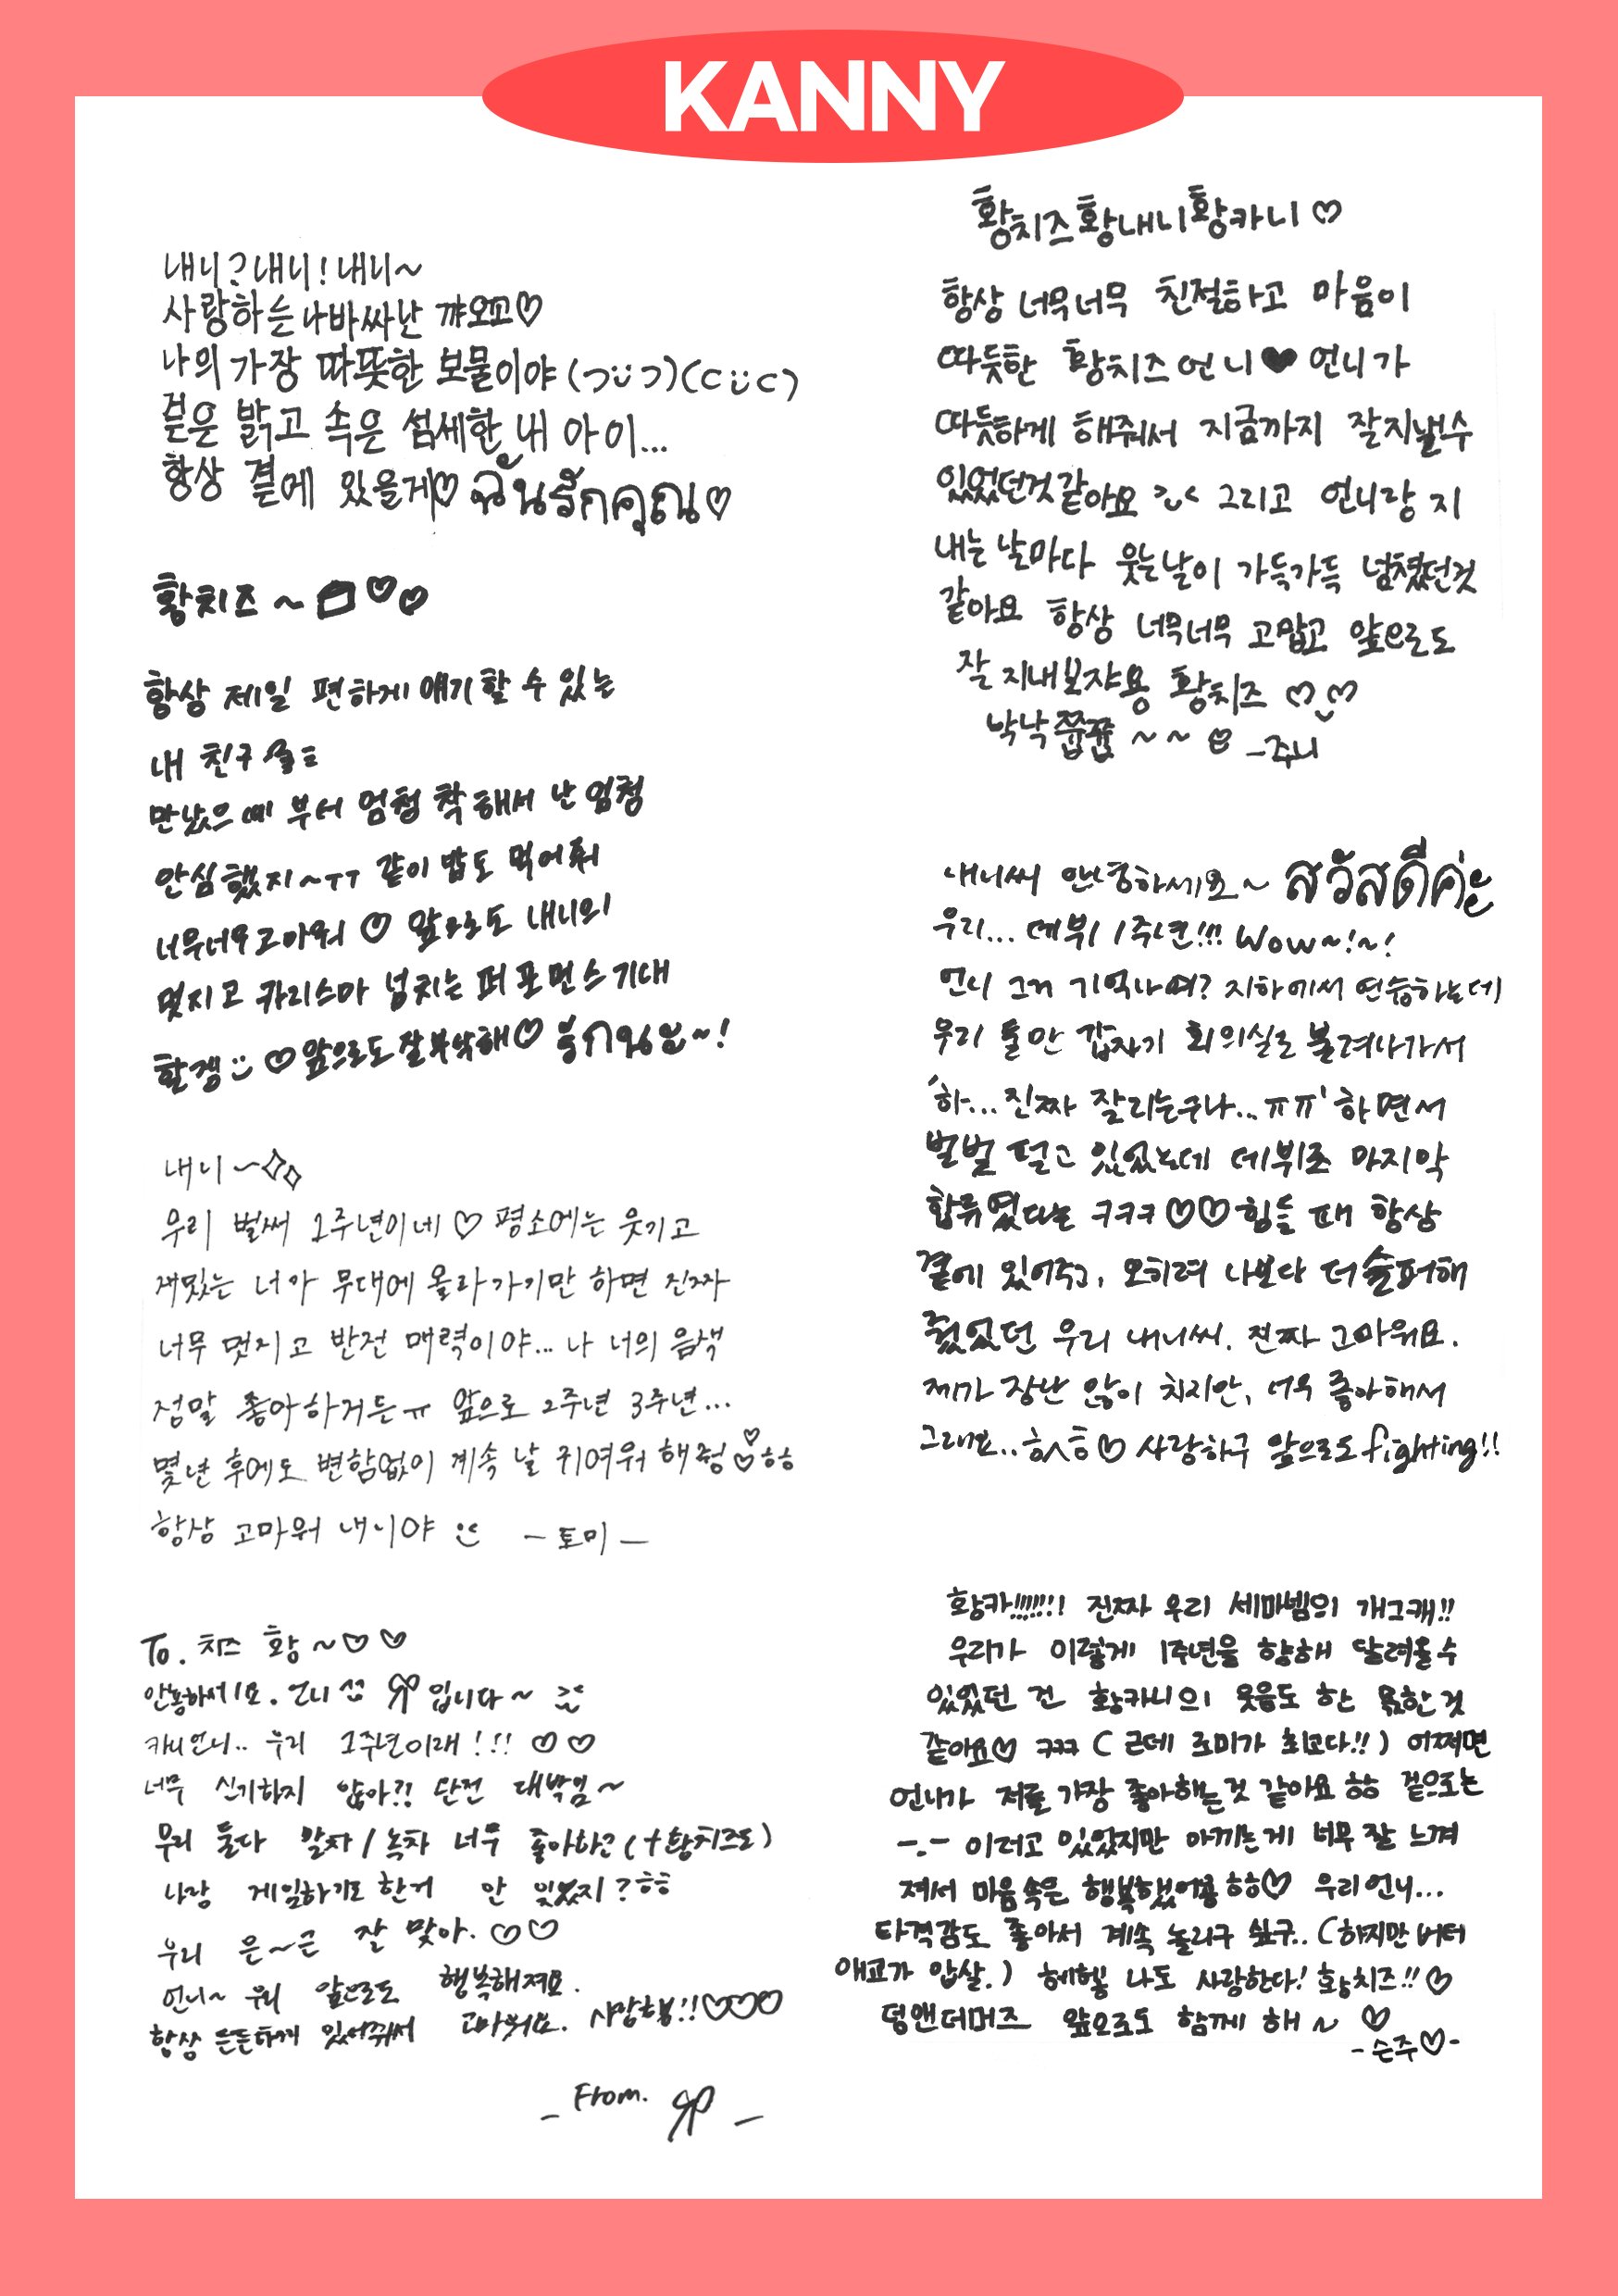 KANNY
내니?내니!내니~
사랑하는 나바싸난 꺄오꼬♡
나의 가장 따뜻한 보물이야
겉은 밝고 속은 섬세한 내 아이...
항상 곁에 있을게♡ ฉันรักคุณ♡
황치즈~ ♡♡
항상 제일 편하게 얘기할 수 있는
내 친구
만났으때 부터 엄청 착해서 난 엄청
안심했지~ㅠㅠ 같이 밥도 먹어줘
너무너무고마워 ♡ 앞으로도 내니의
멋지고 카리스마 넘치는 퍼포먼스기대
할겡 ♡앞으로도잘부탁해♡ ~!
내니~
우리 벌써 1주년이네♡ 평소에는 웃기고
재밌는 너가 무대에 올라가기만 하면 진짜
너무 멋지고 반전 매력이야... 나 너의 음색
정말 좋아하거든ㅠ 앞으로 2주년 3주년...
몇년 후에도 변함없이 계속 날 귀여워 해줭 ㅎㅎ
항상 고마워 내니야 -토미-
To. 치즈 황~♡♡
안뇽하세요. 언니 입니다~
카니언니.. 우리 1주년이래!!! ♡♡
너무 신기하지 않아?! 단전 대박임~
우리 둘다 말차/녹차 너무 좋아하고(+황치즈도)
나랑 게임하기도 한거 안 잊었지?ㅎㅎ
우리 은~근 잘 맞아. ♡♡
언니~ 우리 앞으로도 행복해져요.
항상 든든하게 있어줘서 고마워요. 사랑행!!♡♡♡
- From. -
황치즈황내니황카니♡
항상 너무너무 친절하고 마음이
따듯한 황치즈언니♥언니가
따듯하게 해줘서 지금까지 잘지낼수
있었던것같아요 그리고 언니랑 지
내는 날마다 웃는날이 가득가득 넘쳤던것
같아요 항상 너무너무 고맙고 앞으로도
잘지내보쟈용 황치즈 ♡♡
낙낙쮼쮼~~ -주니
내니씨 안녕하세요~ สวัสดีค่ะ
우리... 데뷔 1주년!!! Wow~!~!
언니 그거 기억나여? 지하에서 연습하는데
우리 둘만 갑자기 회의실로 불려나가서
'하...진짜 잘리는구나..ㅠㅠ'하면서
벌벌 떨고 있었는데 데뷔조 마지막
합류였다는 ㅋㅋㅋ♡♡힘들 때 항상
곁에 있어주고, 오히려 나보다 더 슬퍼해
줬었던 우리 내니씨. 진짜 고마워요.
제가 장난 많이 치지만, 너무 좋아해서
그래요..ㅎㅅㅎ♡ 사랑하구 앞으로도 fighting!!
황카!!!!!!! 진짜 우리 세마넴의 개그캐!!
우리가 이렇게 1주년을 향해 달려올수
있었던 건 황카니의 웃음도 한 몫한것
같아요♡ ㅋㅋㅋ (근데 토미가 최고다!!) 어쩌면
언니가 저를 가장 좋아해는것 같아요 ㅎㅎ 겉으로는
-.- 이러고 있었지만 아끼는게 너무 잘 느껴
져서 마음속은 행복했어용 ㅎㅎ♡ 우리언니...
타격감도 좋아서 계속 놀리구 싶구..(하지만 버터
애교가 압살.) 헤헿 나도 사랑한다! 황치즈!!♡
덩앤더머즈 앞으로도 함께 해~ ♡
-은주♡-